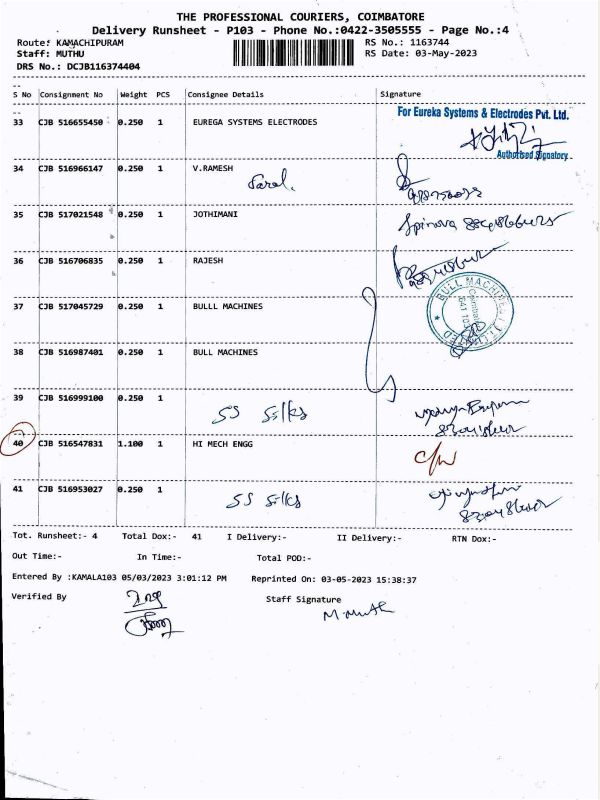 THE PROFESSIONAL COURIERS, COIMBATORE
Delivery Runsheet - P103 - Phone No.:0422-3505555 - Page No.:4
Route: KAMACHIPURAM RS No.: 1163744
Staff: MUTHU RS Date: 03-May-2023
DRS No.: DCJB116374404
S No Consignment No Weight PCS Consignee Details Signature
For Eureka Systems & Electrodes Pvt. Ltd.
33 CJB 516655450 0.250 1 EUREGA SYSTEMS ELECTRODES
Authorised Signatory
34 CJB 516966147 0.250 1 V.RAMESH
35 CJB 517021548 0.250 1 JOTHIMANI
36 CJB 516706835 0.250 1 RAJESH
37 CJB 517045729 0.250 1 BULLL MACHINES
BULL MACHINES
38 CJB 516987401 0.250 1 BULL MACHINES
39 CJB 516999100 0.250 1 SS Silks
40 CJB 516547831 1.100 1 HI MECH ENGG
41 CJB 516953027 0.250 1 SS Silks
Tot. Runsheet:- 4 Total Dox:- 41 I Delivery:- II Delivery:- RTN Dox:-
Out Time:- In Time:- Total POD:-
Entered By :KAMALA103 05/03/2023 3:01:12 PM Reprinted On: 03-05-2023 15:38:37
Verified By Staff Signature